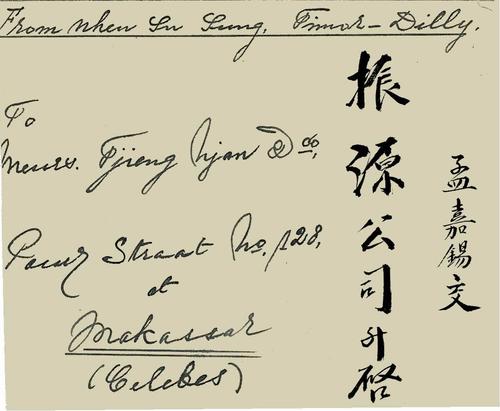 From Nhen Su Sung, Timor-Dilly.
To
Messrs. Tjieng Njan & Co,
Straat No. 128,
at
Makassar
(Celebes)
孟嘉錫交
振源公司升啓